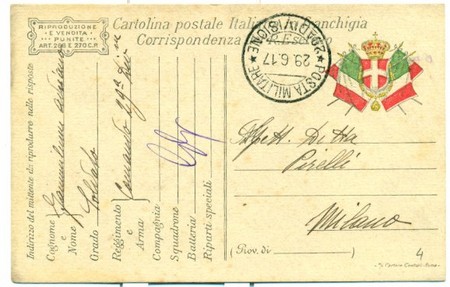 RIPRODUZIONE
E VENDITA
PUNITE
ART. 296 E 370 C.P.
Cartolina postale Italiana in franchigia
Corrispondenza
POSTA MILITARE
29.6.17
DIVISIONE
Indirizzo del mittente da riprodurre nelle risposte
Cognome
e
Nome
Grado Soldato
Reggimento Comando
e
Arma
Compagnia
Squadrone
Batteria
Riparti speciali
Spett. Ditta
Pirelli
Milano
(Prov. di)
4